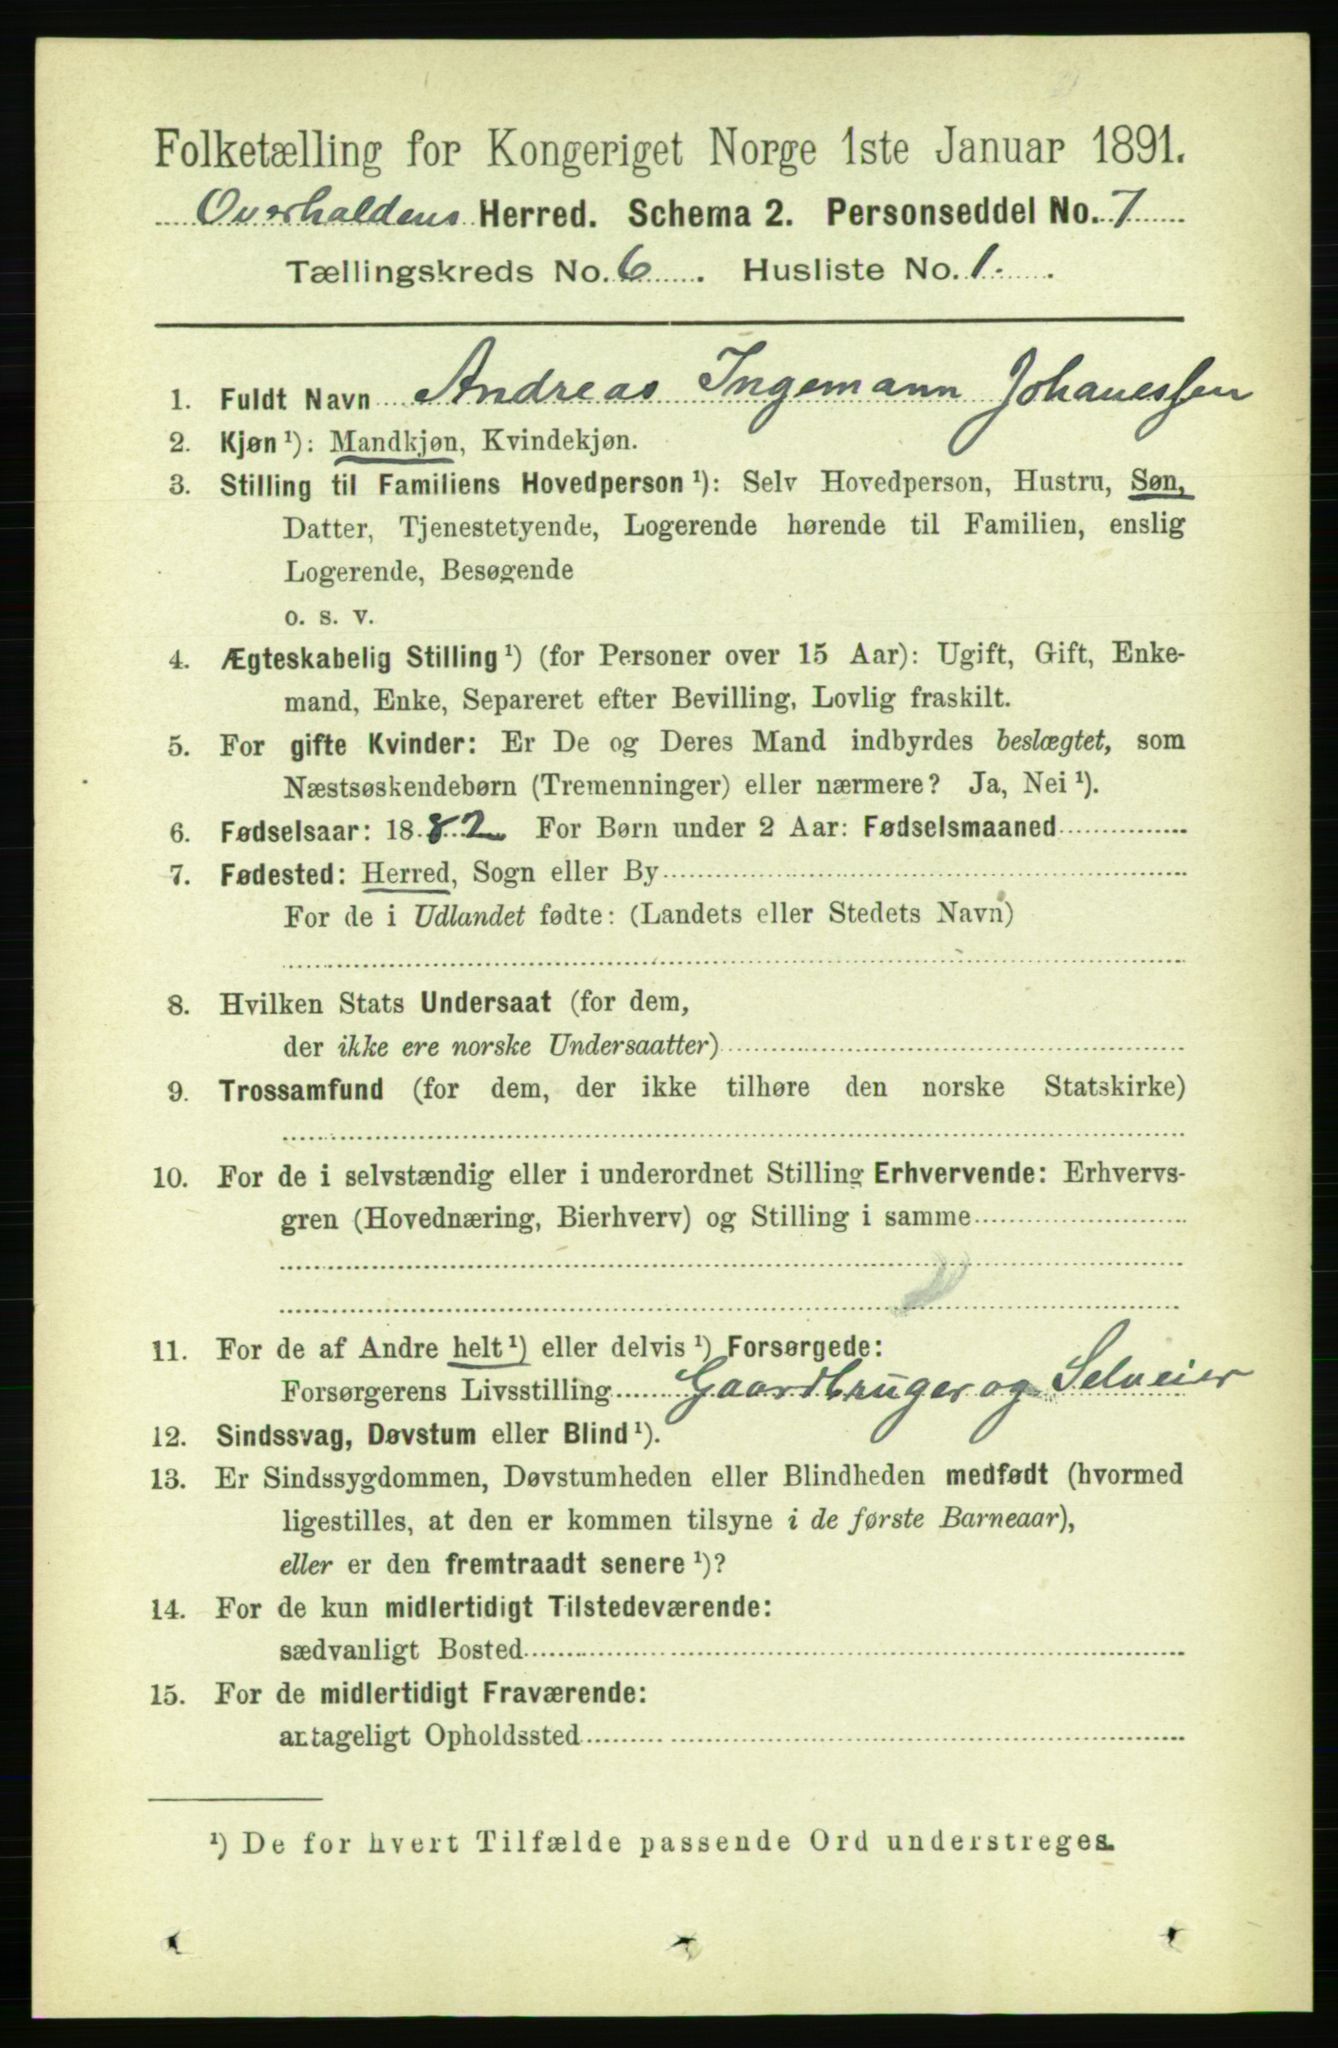 Folketælling for Kongeriget Norge 1ste Januar 1891.
Overhaldens Herred. Schema 2. Personseddel No. 7
Tællingskreds No. 6. Husliste No. 1.
1. Fuldt Navn Andreas Ingemann Johanessen
2. Kjøn ¹): Mandkjøn, Kvindekjøn.
3. Stilling til Familiens Hovedperson ¹): Selv Hovedperson, Hustru, Søn,
Datter, Tjenestetyende, Logerende hørende til Familien, enslig
Logerende, Besøgende
o. s. v.
4. Ægteskabelig Stilling ¹) (for Personer over 15 Aar): Ugift, Gift, Enke-
mand, Enke, Separeret efter Bevilling, Lovlig fraskilt.
5. For gifte Kvinder: Er De og Deres Mand indbyrdes beslægtet, som
Næstsøskendebørn (Tremenninger) eller nærmere? Ja, Nei ¹).
6. Fødselsaar: 1882 For Børn under 2 Aar: Fødselsmaaned
7. Fødested: Herred, Sogn eller By
For de i Udlandet fødte: (Landets eller Stedets Navn)
8. Hvilken Stats Undersaat (for dem,
der ikke ere norske Undersaatter)
9. Trossamfund (for dem, der ikke tilhøre den norske Statskirke)
10. For de i selvstændig eller i underordnet Stilling Erhvervende: Erhvervs-
gren (Hovednæring, Bierhverv) og Stilling i samme
11. For de af Andre helt ¹) eller delvis ¹) Forsørgede:
Forsørgerens Livsstilling Gaardbruger og Selveier
12. Sindssvag, Døvstum eller Blind ¹).
13. Er Sindssygdommen, Døvstumheden eller Blindheden medfødt (hvormed
ligestilles, at den er kommen tilsyne i de første Barneaar),
eller er den fremtraadt senere ¹)?
14. For de kun midlertidigt Tilstedeværende:
sædvanligt Bosted
15. For de midlertidigt Fraværende:
antageligt Opholdssted
¹) De for hvert Tilfælde passende Ord understreges.